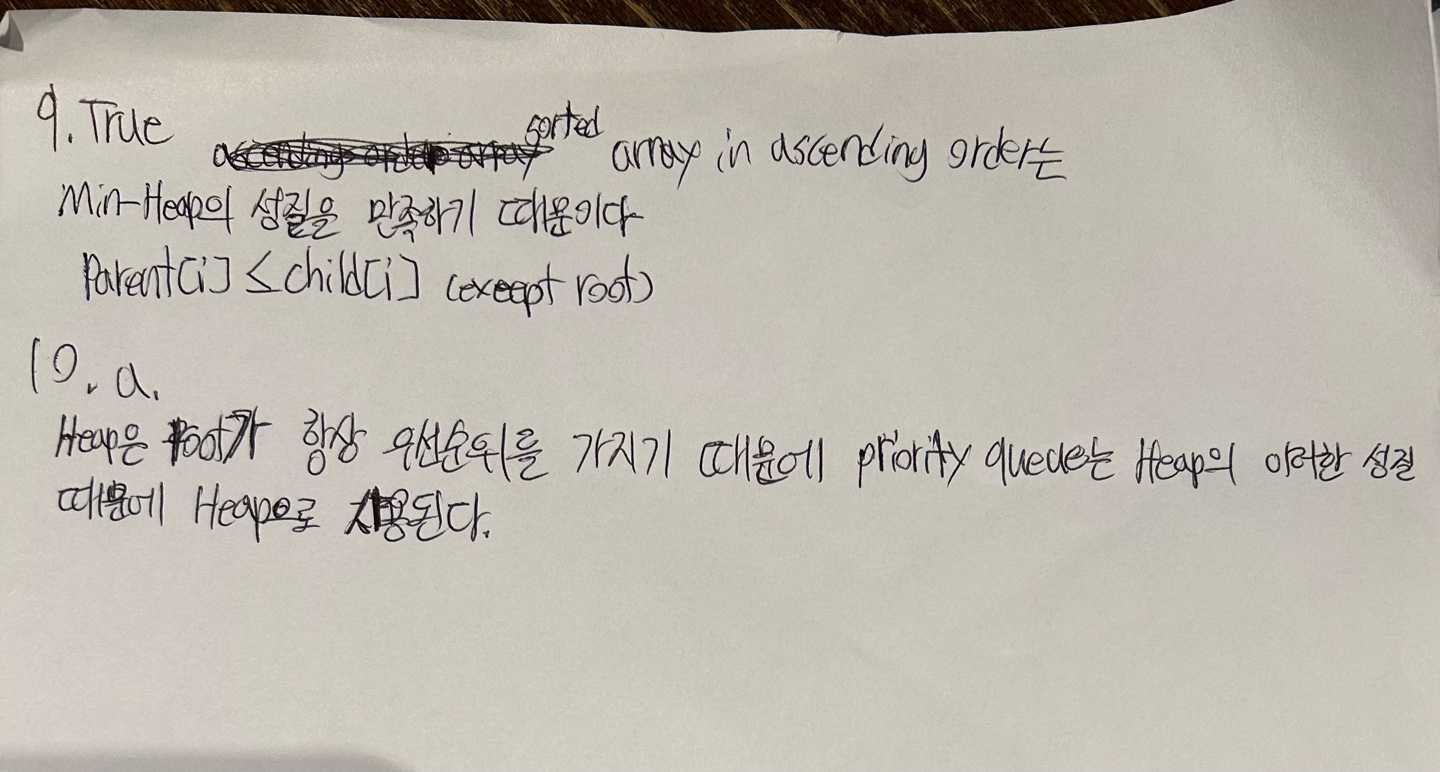 9. True
sorted array in ascending order는
Min-Heap의 성질을 만족하기 때문이다
Parent[i] ≤ child[i] (except root)
10. a.
Heap은 root가 항상 우선순위를 가지기 때문에 priority queue는 Heap의 이러한 성질
때문에 Heap으로 사용된다.